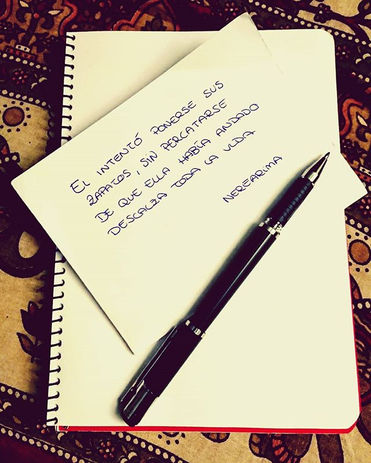 EL INTENTÓ PONERSE SUS
ZAPATOS, SIN PERCATARSE
DE QUE ELLA HABÍA ANDADO
DESCALZA TODA LA VIDA.
NEREARIMA